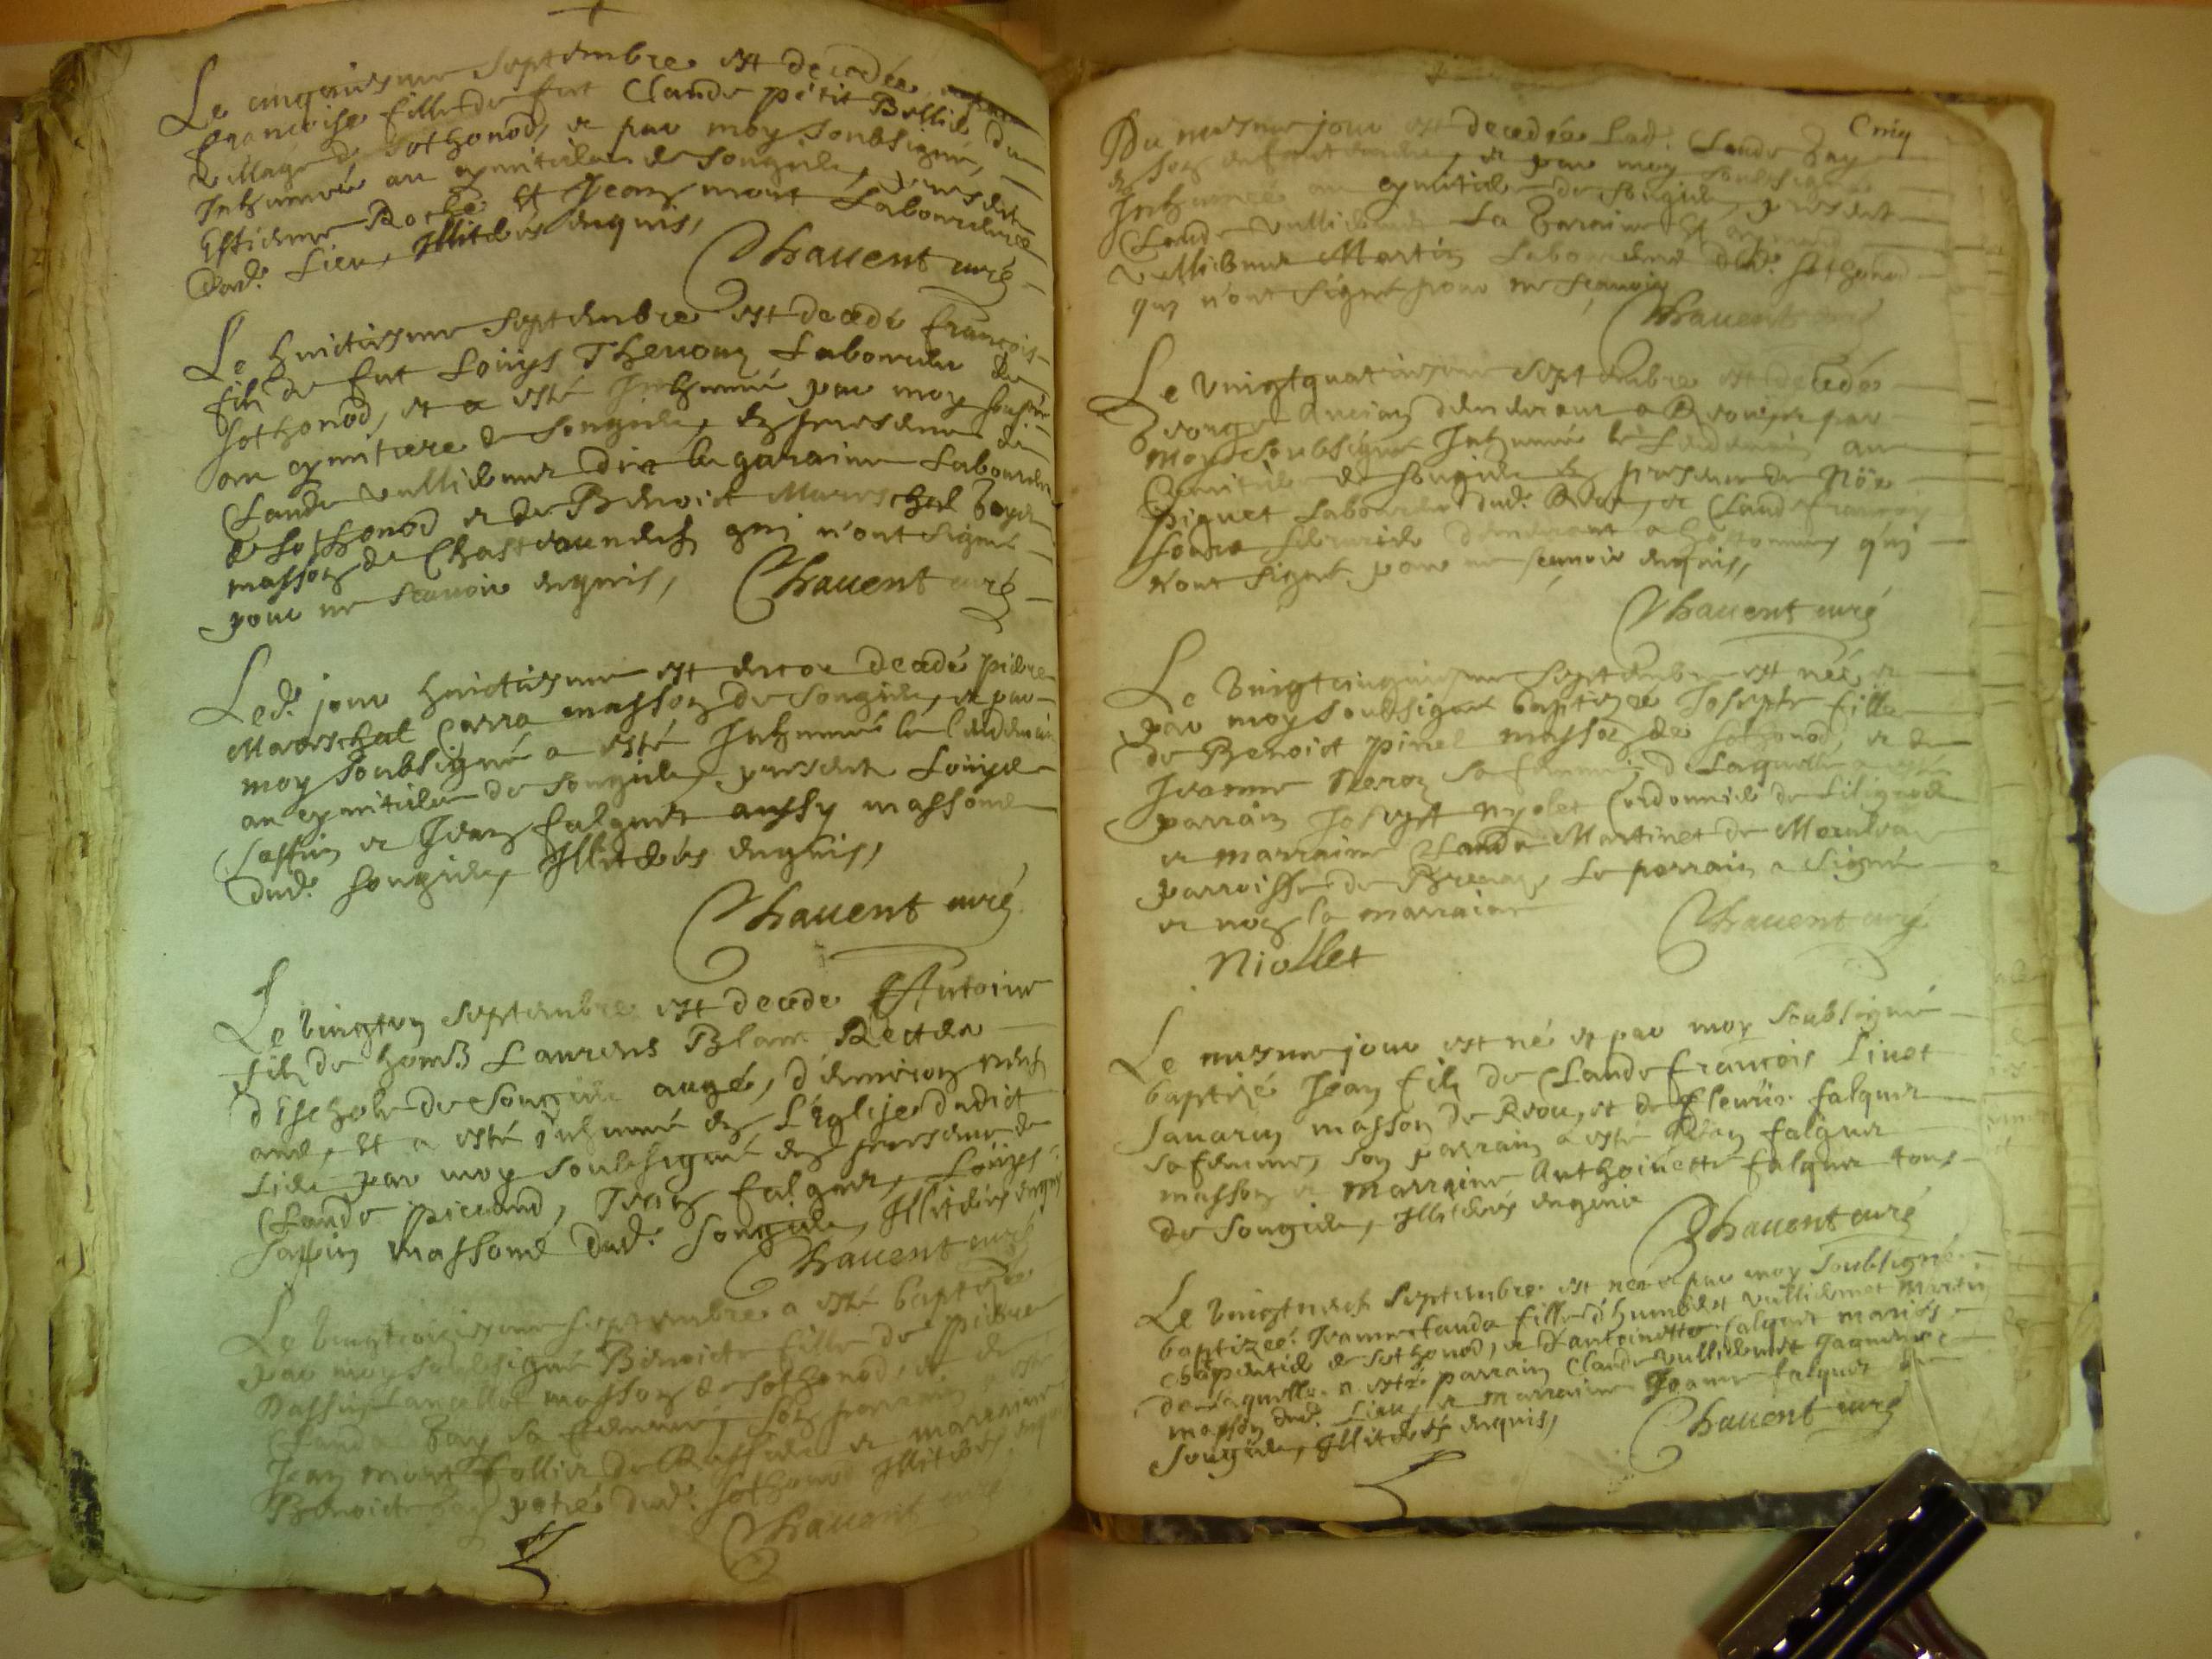 Le cinquiesme Septembre est decedée
francoise fille de fut Claude petit Bollié du
village de Sothonod, et par moy soubsigné,
Inhumée au cymitiere de Songieu, presents
Estienne Roche et Jean mont Laboureurs
dud. Lieu, Illiterés enquis,
Chauent curé
Le huictiesme Septembre est decedé francois
fils de fut Louys Theuom Laboureur de
Sothonod, et a esté Inhumé par moy soubsigné
au cymitiere de Songieu, en presence de
Claude vulliemer dit la garaine Laboureur
de Sothonod et de Benoict Mareschal
masson de Chasteauneuf qui n'ont signé
pour ne scauoir enquis, Chauent curé
Led. jour huictiesme est encor decedé pierre
Mareschal Carra masson de Songieu, et par
moy soubsigné a esté Inhumé le lendemain
au cymitiere de Songieu, presents Louys
Sappin et Jean falquet aussy massons
dud. Songieu, Illiterés enquis,
Chauent curé
Le vingt un Septembre est decedé Anthoine
fils de hom. Laurens Blanc Recteur
d'eschole de Songieu augé, d'environ neuf
ans, et a esté inhumé en L'Eglise dudict
Lieu par moy soubsigné en presence de
Claude piccand, Jean falquet, Louys
Sappin massons dud. Songieu, Illiterés enquis
Chauent curé
Le vingttroisiesme Septembre a esté baptizée
par moy soubsigné Benoicte fille de pierre
Passin Lancellot masson de Sothonod, et de
Claude Bay sa femme, son parrain a esté
Jean mont follier de Rassieu et marraine
Benoicte Bay dud. Sothonod Illiterés
Chauent curé
Cinq
Du mesme jour est decedée Lad. Claude Bay
et par moy soubsigné
Inhumée au cymitiere de Songieu, presents
Claude vulliemer La Garaine et
vulliemer Martin Laboureurs dud. Sothonod
qui n'ont signé pour ne scauoir
Chauent curé
Le vingtquatriesme Septembre est decedé
George Ancian demeurant a par
moy soubsigné Inhumé le Lendemain au
Cymitiere de Songieu en presence de Nöe
piguet Laboureur dud. et Claude francoys
demeurant a hostonne qui
n'ont signé pour ne scauoir enquis,
Chauent curé
Le vingtcinquiesme Septembre est née et
par moy soubsigné baptizée Josepte fille
de Benoict pinel masson de Sothonod, et de
Jeanne Neroz sa femme, de Laquelle a esté
parrain Joseph nyolet Cordonnier de Lilignod
et marraine Claudа Martinet de
parroisse de Brenaz, Le parrain a signé
et non la marraine
Chauent curé
Niollet
Le mesme jour est né et par moy soubsigné
baptizé Jean fils de Claude francois Linet
Sauarin masson de et de fleurie falquet
sa femme, son parrain a esté Jean falquet
masson et marraine Anthoinette falquet tous
de Songieu, Illiterés enquis
Chauent curé
Le vingtneuf Septembre est née et par moy soubsigné
baptizée Jeanne Clauda fille d'humbert vulliermet Martin
chapentié de Sothonod, et d'antoinette falquet mariés
de Laquelle a esté parrain Claude vulliermet
masson dud. Lieu, et marraine Jeanne falquet de
Songieu, Illiterés enquis,
Chauent curé